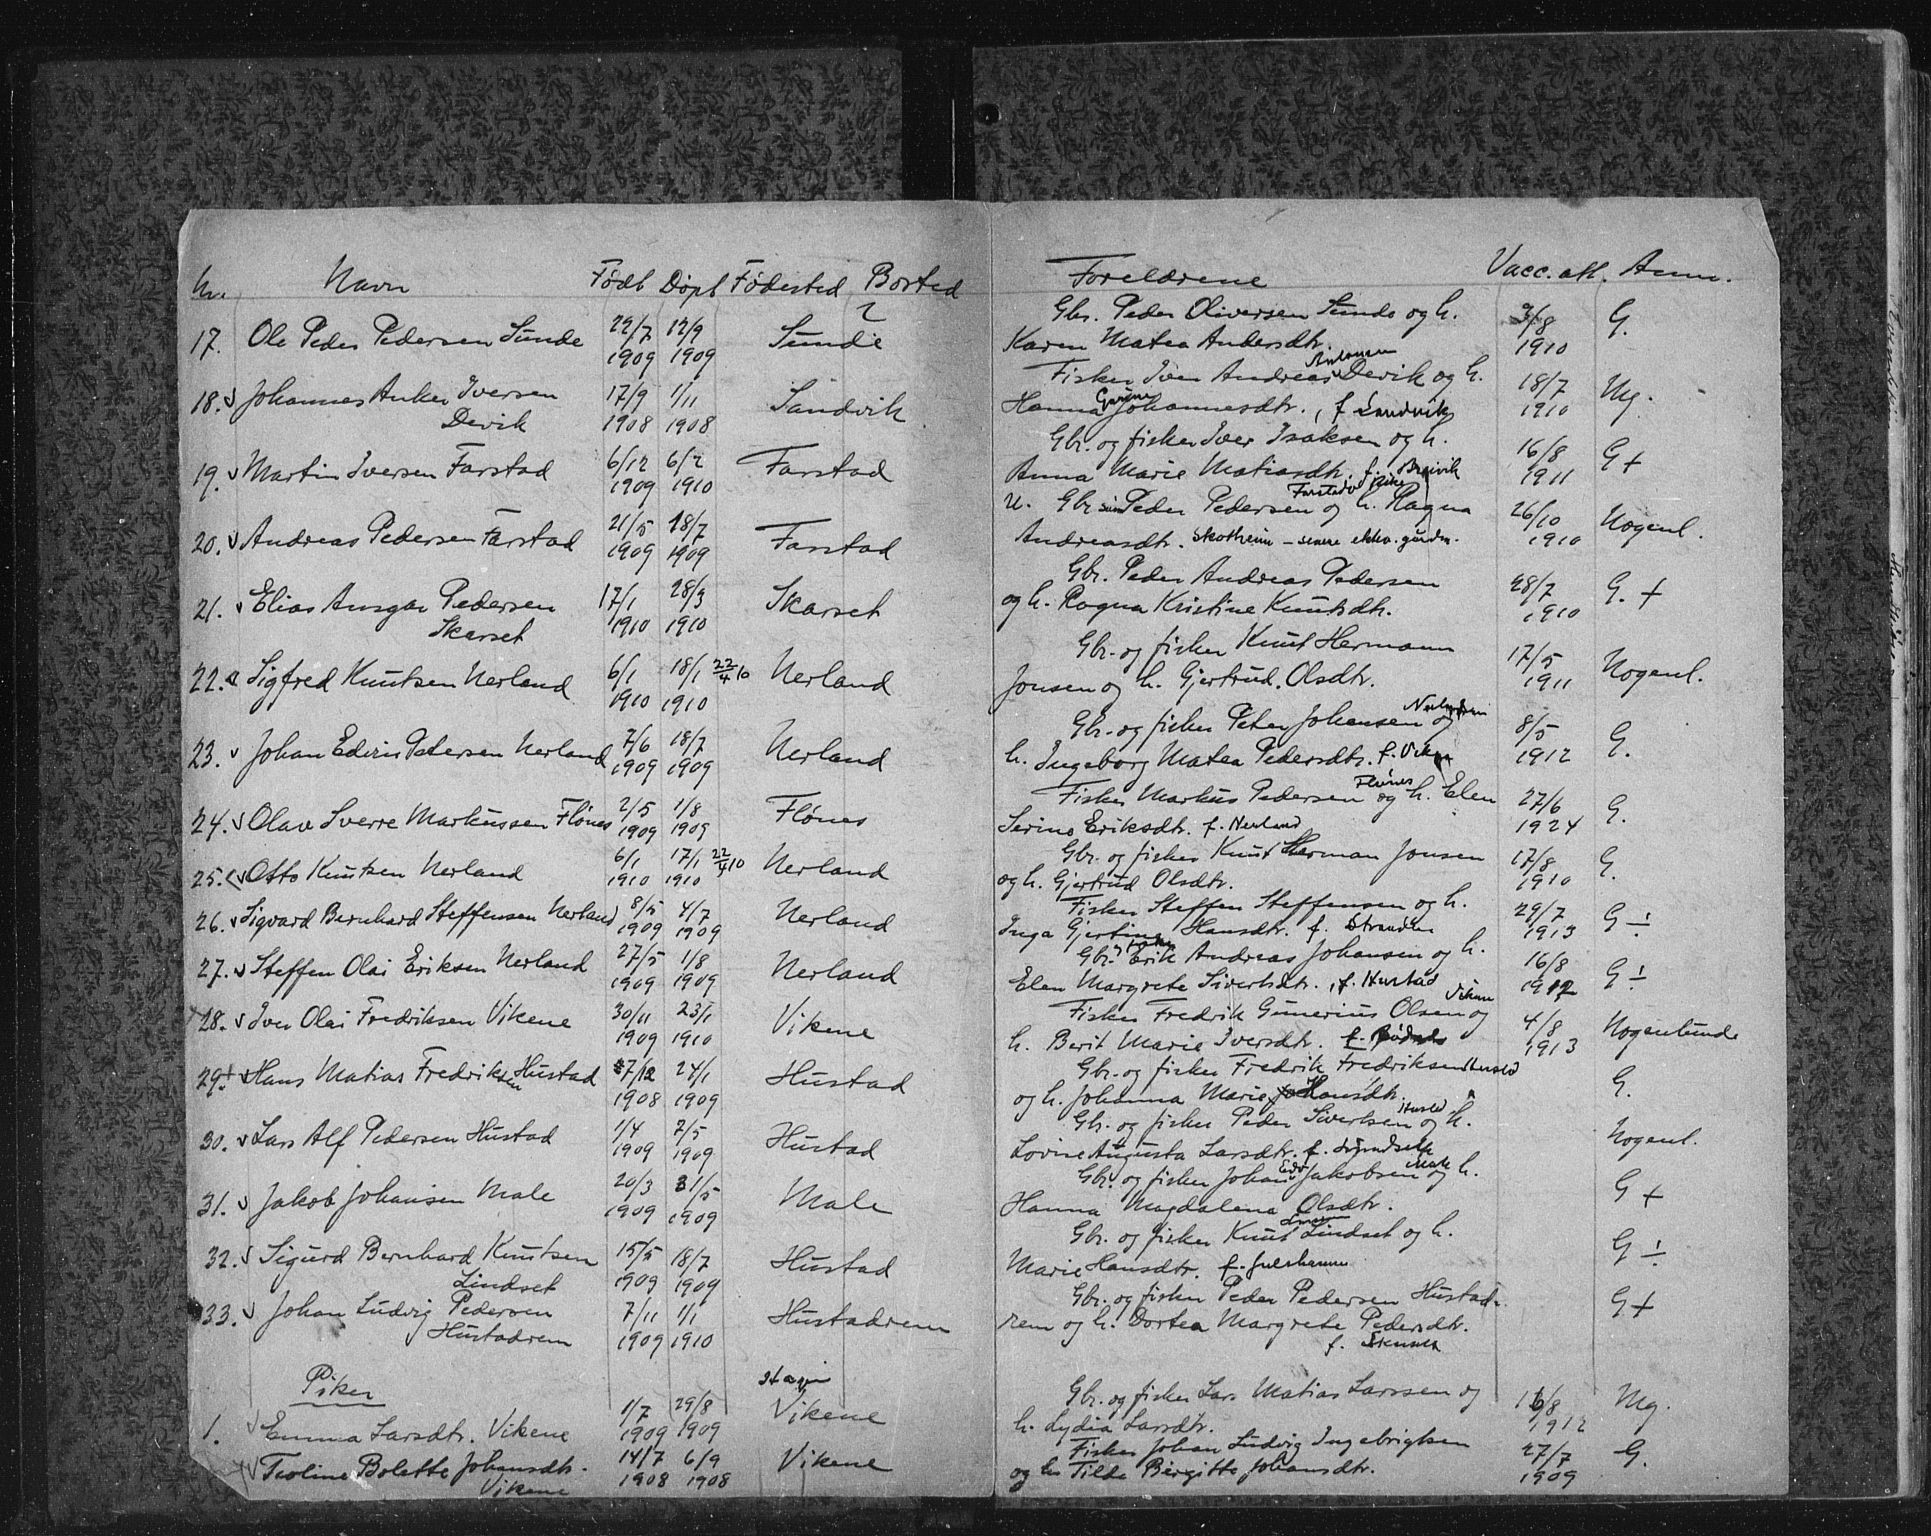 Nr. Navn Født Døpt Fødested Bosted Foreldrene Vacc. att. Anm.
17. Ole Peder Pedersen Sunde 22/7 1909 12/9 1909 Sunde Gbr. Peder Oliversen Sunde og h. 3/8 1910 G.
Karen Matea Andersdtr.
18. Johannes Anker Iversen 17/9 1908 1/11 1908 Sandvik Fisker Iver Andreas Antonsen Devik og h. 18/7 1910 Mg.
Devik Hanna Gurine Johannesdtr., f. Sandvik
19. Martin Iversen Farstad 6/12 1909 6/2 1910 Farstad Gbr. og fisker Iver Isaksen og h. 16/8 1911 G +
Anna Marie Matiasdtr. f. Breivik
20. Andreas Pedersen Farstad 21/5 1909 18/7 1909 Farstad U. Gbr. søn Peder Pedersen og h. Ragna 26/10 1910 Nogenl.
Andreasdtr. Skotheim - senere ekte. gårdm.
21. Elias Ansgar Pedersen 17/1 1910 28/3 1910 Skarset Gbr. Peder Andreas Pedersen 28/7 1910 G. +
Skarset og h. Ragna Kristine Knutsdtr.
22. Sigfred Knutsen Nerland 6/1 1910 18/1 1910 22/4 10 Nerland Gbr. og fisker Knut Hermann 17/5 1911 Nogenl.
Jonsen og h. Gjertrud Olsdtr.
23. Johan Edvin Petersen Nerland 7/6 1909 18/7 1909 Nerland Gbr. og fisker Peter Johansen og 8/5 1912 G.
h. Ingeborg Matea Pedersdtr. f. Viken
24. Olav Sverre Markussen Flønes 2/5 1909 1/8 1909 Flønes Fisker Markus Pedersen Flønes og h. Elen 27/6 1924 G.
Serine Eriksdtr. f. Nerland
25. Otto Knutsen Nerland 6/1 1910 17/1 1910 22/4 10 Nerland Gbr. og fisker Knut Herman Jonsen 17/8 1910 G.
og h. Gjertrud Olsdtr.
26. Sigvard Bernhard Steffensen Nerland 8/5 1909 4/7 1909 Nerland Fisker Steffen Steffensen og h. 29/7 1913 G ÷
Inga Gjertine Hansdtr. f. Stranden
27. Steffen Olai Eriksen Nerland 27/5 1909 1/8 1909 Nerland Gbr. Erik Andreas Johansen og h. 16/8 1912 G ÷
Elen Margrete Sivertsdtr., f. Hustad
28. Iver Olai Fredriksen Vikene 30/11 1909 23/1 1910 Vikene Fisker Fredrik Gunerius Olsen Vikene og 4/8 1913 Nogenlunde
h. Berit Marie Iversdtr.
29. Hans Matias Fredriksen Hustad 7/12 1908 24/1 1909 Hustad Gbr. og fisker Fredrik Fredriksen Hustad G.
og h. Johanna Marie Hansdtr.
30. Lars Alf Pedersen Hustad 1/4 1909 2/5 1909 Hustad Gbr. og fisker Peder Sivertsen Hustad og h. Nogenl.
Lovise Augusta Larsdtr.
31. Jakob Johansen Male 20/3 1909 31/5 1909 Male Gbr. og fisker Johan Edv. Jakobsen Male og h. G +
Hanna Magdalena Olsdtr.
32. Sigurd Bernhard Knutsen 15/5 1909 18/7 1909 Hustad Gbr. og fisker Knut Lindset og h. G ÷
Lindset Marie Hansdtr. f. Julshamn
33. Johan Ludvig Pedersen 7/11 1909 1/1 1910 Hustadrem Gbr. og fisker Peder Pedersen Hustad- G +
Hustadrem rem og h. Dortea Margrete Pedersdtr.
Piker
1. Emma Larsdtr. Vikene 1/7 1909 29/8 1909 Vikene Gbr. og fisker Lars Matias Larssen og 16/8 1912 Mg.
h. Lydia Larsdtr.
Troline Bolette Johansdtr. 14/7 1908 6/9 1908 Vikene Fisker Johan Ludvig Ingebrigtsen 27/7 1909 G.
Vikene og h. Tilda Birgitte Johansdtr.